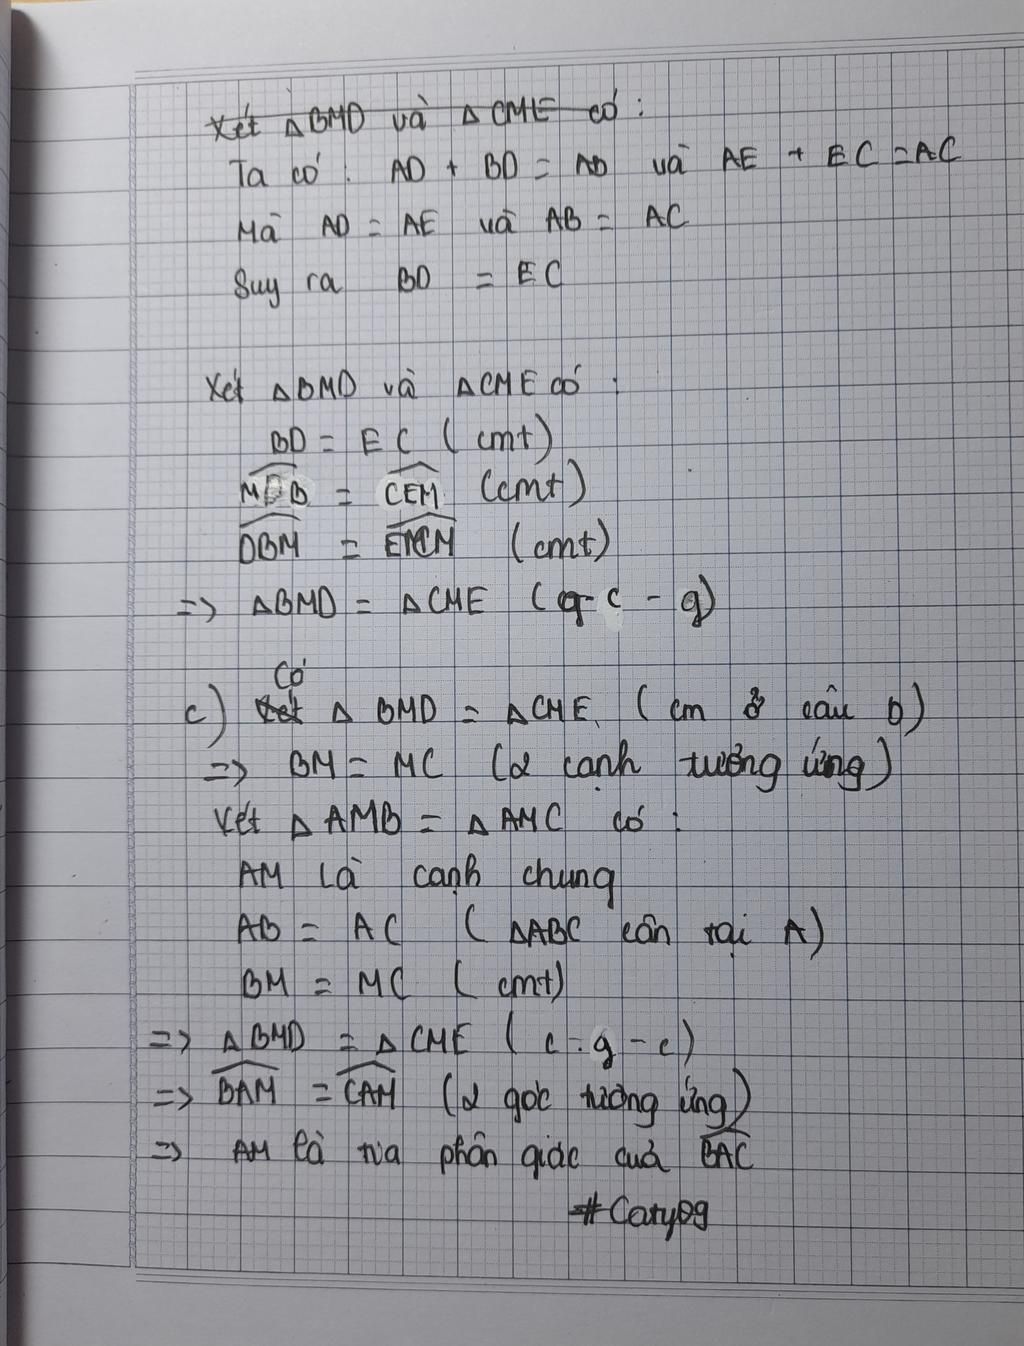 Xét △BMD và △CME có :
Ta có : AD + BD = AB và AE + EC = AC
Mà AD = AE và AB = AC
Suy ra BD = EC
Xét △BMD và △CME có :
BD = EC ( cmt)
MDB = CEM (cmt)
DBM = ECM (cmt)
=> △BMD = △CME ( g-c-g)
Có
c) Xét △ BMD = △CME ( cm ở câu b)
=> BM = MC (2 cạnh tương ứng)
Xét △AMB = △AMC có :
AM là cạnh chung
AB = AC ( △ABC cân tại A)
BM = MC ( cmt)
=> △BMD = △CME ( c-g-c)
=> BAM = CAM (2 góc tương ứng)
=> AM là tia phân giác của BAC
#Caty09